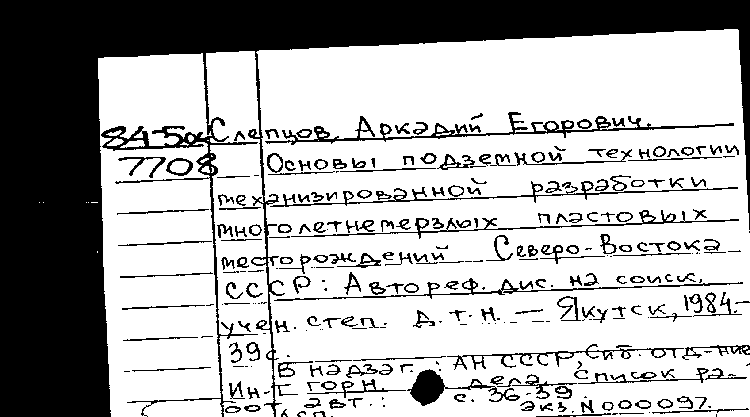 84-5а Слепцов, Аркадий Егорович.
7708 Основы подземной технологии
механизированной разработки
многолетнемерзлых пластовых
месторождений Северо-Востока
СССР: Автореф. дис. на соиск.
учен. степ. д.т.н. — Якутск, 1984.—
39 с.
В надзаг.: АН СССР, Сиб. отд-ние
Ин-т горн. дела, Список ра-
бот авт.: с. 36-39
экз. N000097.